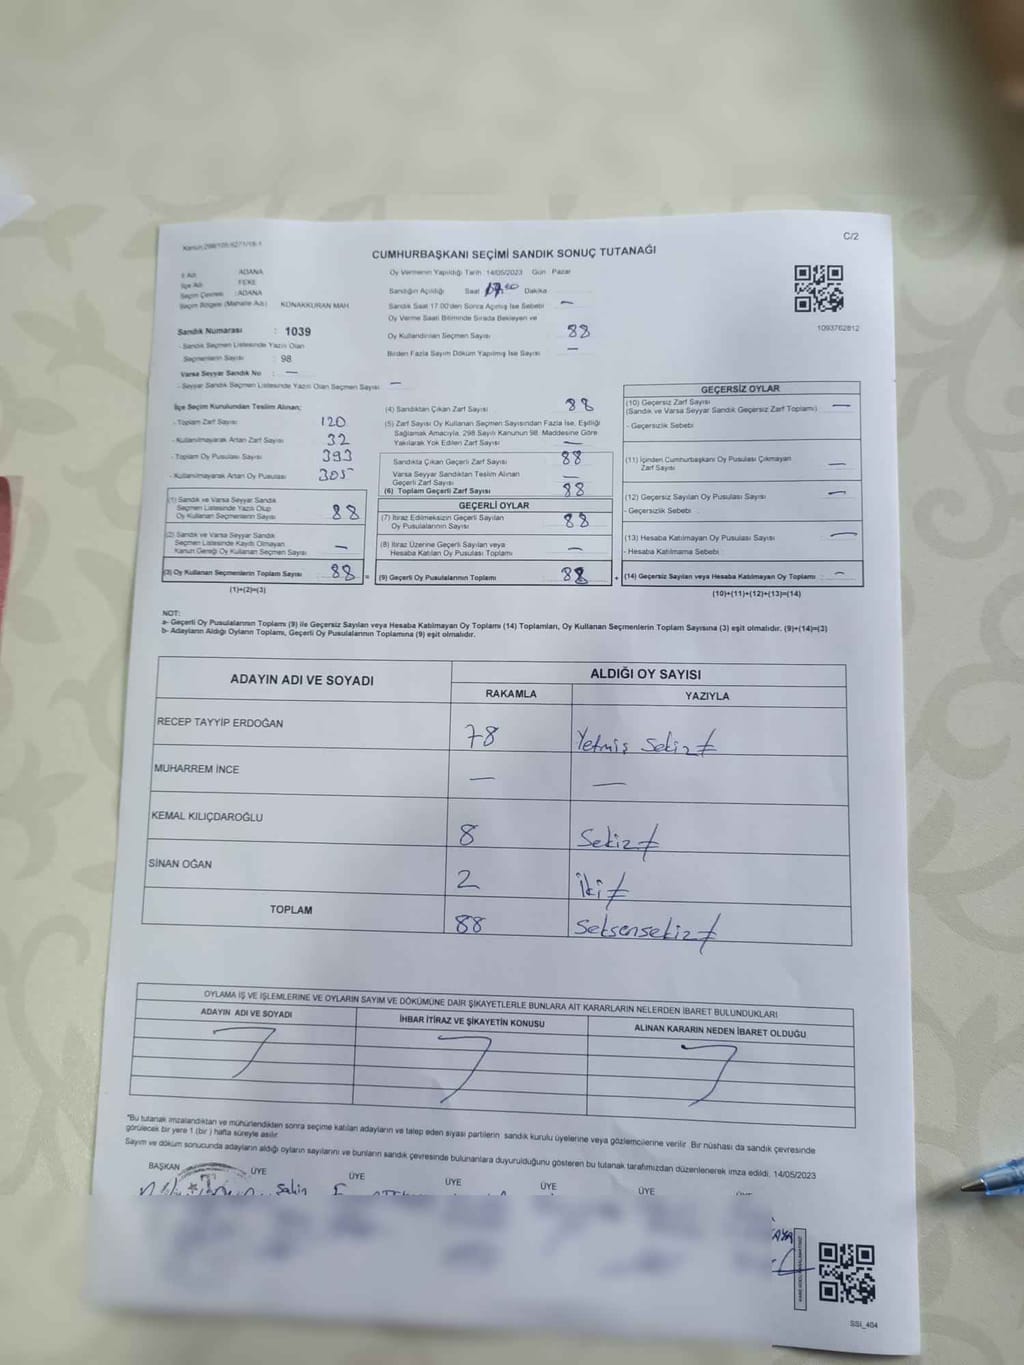 C/2
CUMHURBAŞKANI SEÇİMİ SANDIK SONUÇ TUTANAĞI
İl Adı : ADANA
İlçe Adı : FEKE
Seçim Çevresi : ADANA
Seçim Bölgesi (Mahalle Adı) KONAKKURAN MAH
Sandık Numarası : 1039
- Sandık Seçmen Listesinde Yazılı Olan
Seçmenlerin Sayısı : 98
Varsa Seyyar Sandık No : —
- Seyyar Sandık Seçmen Listesinde Yazılı Olan Seçmen Sayısı —
Oy Vermenin Yapıldığı Tarih 14/05/2023 Gün Pazar
Sandığın Açıldığı Saat Dakika
Sandık Saat 17.00'den Sonra Açılmış İse Sebebi —
Oy Verme Saati Bitiminde Sırada Bekleyen ve
Oy Kullandırılan Seçmen Sayısı 88
Birden Fazla Sayım Döküm Yapılmış İse Sayısı —
1093762812
İlçe Seçim Kurulundan Teslim Alınan;
- Toplam Zarf Sayısı 120
- Kullanılmayarak Artan Zarf Sayısı 32
- Toplam Oy Pusulası Sayısı 393
- Kullanılmayarak Artan Oy Pusulası 305
(1) Sandık ve Varsa Seyyar Sandık
Seçmen Listesinde Yazılı Olup
Oy Kullanan Seçmenlerin Sayısı 88
(2) Sandık ve Varsa Seyyar Sandık
Seçmen Listesinde Kayıtlı Olmayan
Kanun Gereği Oy Kullanan Seçmen Sayısı —
(3) Oy Kullanan Seçmenlerin Toplam Sayısı 88 =
(1)+(2)=(3)
(4) Sandıktan Çıkan Zarf Sayısı 88
(5) Zarf Sayısı Oy Kullanan Seçmen Sayısından Fazla İse, Eşitliği
Sağlamak Amacıyla, 298 Sayılı Kanunun 98. Maddesine Göre
Yakılarak Yok Edilen Zarf Sayısı —
Sandıkta Çıkan Geçerli Zarf Sayısı 88
Varsa Seyyar Sandıktan Teslim Alınan
Geçerli Zarf Sayısı —
(6) Toplam Geçerli Zarf Sayısı 88
GEÇERLİ OYLAR
(7) İtiraz Edilmeksizin Geçerli Sayılan
Oy Pusulalarının Sayısı 88
(8) İtiraz Üzerine Geçerli Sayılan veya
Hesaba Katılan Oy Pusulası Toplamı —
(9) Geçerli Oy Pusulalarının Toplamı 88 +
GEÇERSİZ OYLAR
(10) Geçersiz Zarf Sayısı —
(Sandık ve Varsa Seyyar Sandık Geçersiz Zarf Toplamı)
- Geçersizlik Sebebi
(11) İçinden Cumhurbaşkanı Oy Pusulası Çıkmayan
Zarf Sayısı —
(12) Geçersiz Sayılan Oy Pusulası Sayısı —
- Geçersizlik Sebebi
(13) Hesaba Katılmayan Oy Pusulası Sayısı —
- Hesaba Katılmama Sebebi :
(14) Geçersiz Sayılan veya Hesaba Katılmayan Oy Toplamı —
(10)+(11)+(12)+(13)=(14)
NOT:
a- Geçerli Oy Pusulalarının Toplamı (9) ile Geçersiz Sayılan veya Hesaba Katılmayan Oy Toplamı (14) Toplamları, Oy Kullanan Seçmenlerin Toplam Sayısına (3) eşit olmalıdır. (9)+(14)=(3)
b- Adayların Aldığı Oyların Toplamı, Geçerli Oy Pusulalarının Toplamına (9) eşit olmalıdır.
ADAYIN ADI VE SOYADI ALDIĞI OY SAYISI
RAKAMLA YAZIYLA
RECEP TAYYİP ERDOĞAN 78 Yetmiş Sekiz
MUHARREM İNCE — —
KEMAL KILIÇDAROĞLU 8 Sekiz
SİNAN OĞAN 2 İki
TOPLAM 88 Seksensekiz
OYLAMA İŞ VE İŞLEMLERİNE VE OYLARIN SAYIM VE DÖKÜMÜNE DAİR ŞİKAYETLERLE BUNLARA AİT KARARLARIN NELERDEN İBARET BULUNDUKLARI
ADAYIN ADI VE SOYADI İHBAR İTİRAZ VE ŞİKAYETİN KONUSU ALINAN KARARIN NEDEN İBARET OLDUĞU
*Bu tutanak imzalandıktan ve mühürlendikten sonra seçime katılan adayların ve talep eden siyasi partilerin sandık kurulu üyelerine veya gözlemcilerine verilir. Bir nüshası da sandık çevresinde
görülecek bir yere 1 (bir) hafta süreyle asılır.
Sayım ve döküm sonucunda adayların aldığı oyların sayılarını ve bunların sandık çevresinde bulunanlara duyurulduğunu gösteren bu tutanak tarafımızdan düzenlenerek imza edildi. 14/05/2023
BAŞKAN ÜYE ÜYE ÜYE ÜYE ÜYE
SSI_404